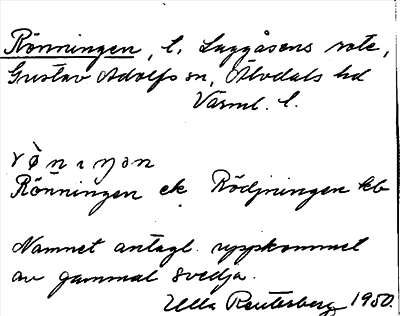 Rönningen, l. Laggåsens rote,
Gustav Adolfs sn, Älvdals hd
Värml. l.
rø̀nıŋən
Rönningen ek. Rödjningen kb
Namnet antagl. uppkommet
av gammal svedja.
Ulla Reuterberg 1950.